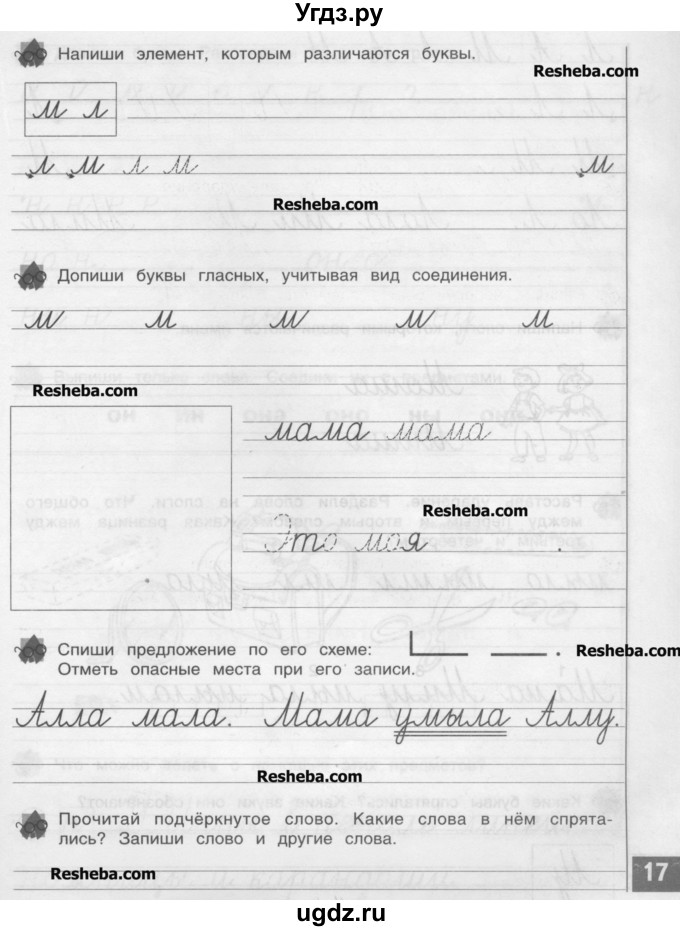 Угдз.ру
Напиши элемент, которым различаются буквы.
Resheba.com
м л
л м л м м
Resheba.com
Допиши буквы гласных, учитывая вид соединения.
м м м м м
Resheba.com
мама мама
Resheba.com
Это моя .
Спиши предложение по его схеме:
Resheba.com
Отметь опасные места при его записи.
Алла мала. Мама умыла Аллу.
Resheba.com
Прочитай подчёркнутое слово. Какие слова в нём спрята-
лись? Запиши слово и другие слова.
Resheba.com
17
ugdz.ru